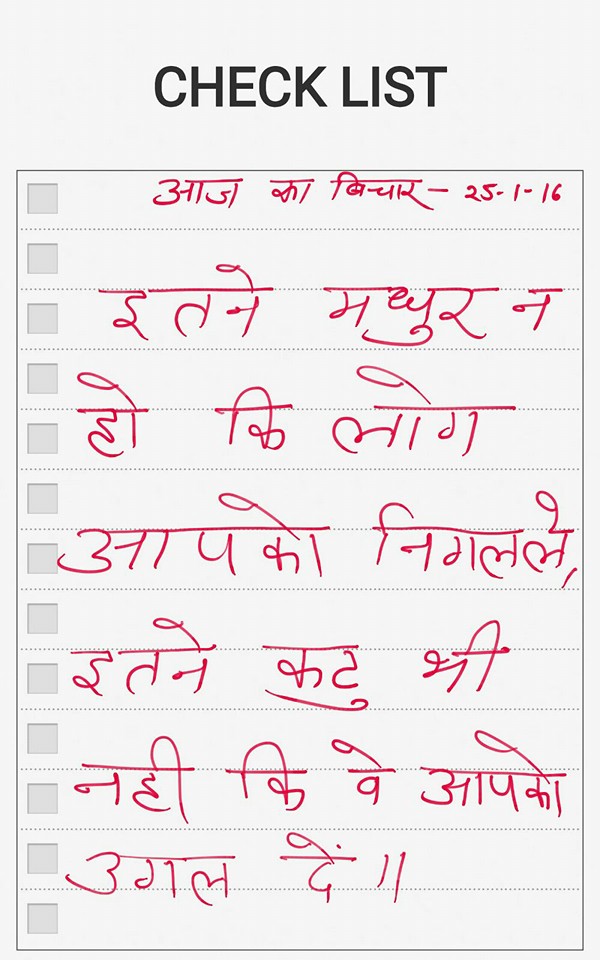 CHECK LIST
आज का बिचार - 25-1-16
इतने मधुर न
हो कि लोग
आपको निगलले,
इतने कटु भी
नही कि वे आपको
उगल दें ॥